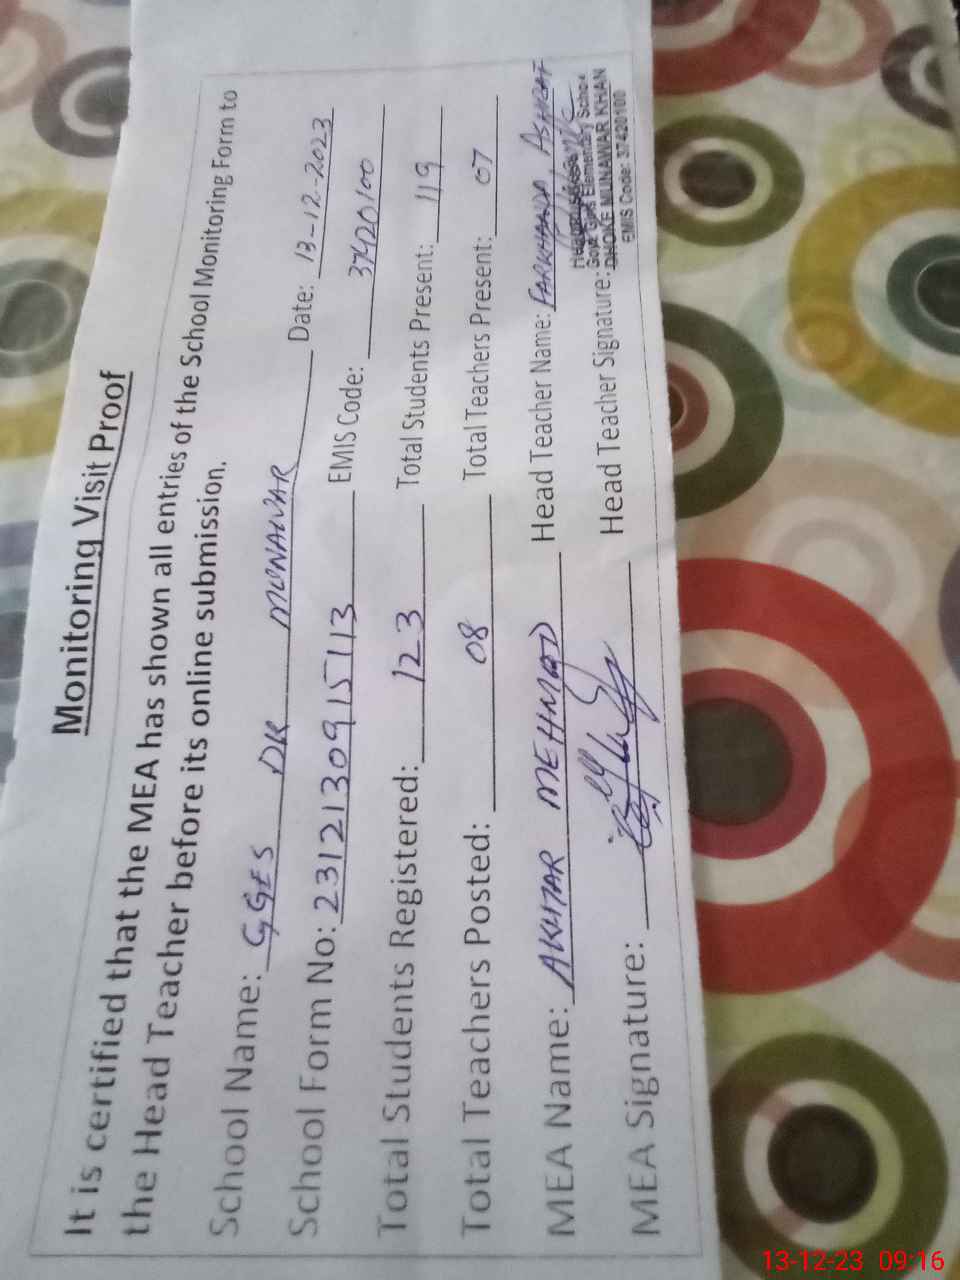 Monitoring Visit Proof
It is certified that the MEA has shown all entries of the School Monitoring Form to
the Head Teacher before its online submission.
School Name: GGES DK MUNAWAR Date: 13-12-2023
School Form No: 2312130915113 EMIS Code: 37420100
Total Students Registered: 123 Total Students Present: 119
Total Teachers Posted: 08 Total Teachers Present: 07
MEA Name: AKHTAR MEHMOOD Head Teacher Name: FARKHANDA ASHRAF
MEA Signature: Head Teacher Signature:
Govt. Girls Elementary School
DHOKE MUNAWAR KHAN
EMIS Code: 37420100
13-12-23 09:16